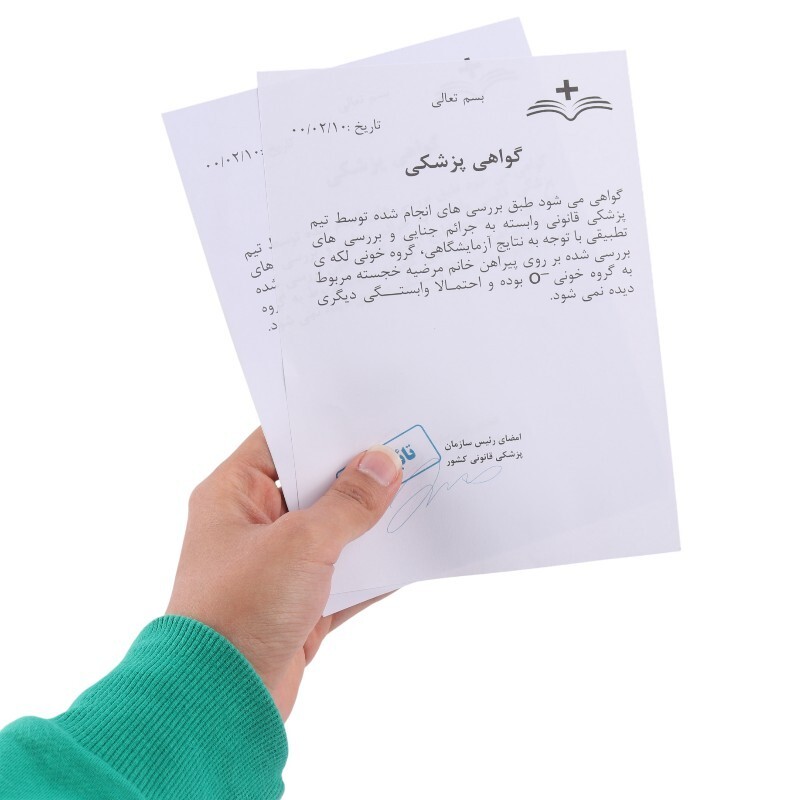 بسم تعالی
تاریخ :۰۰/۰۲/۱۰
گواهی پزشکی
گواهی می شود طبق بررسی های انجام شده توسط تیم
پزشکی قانونی وابسته به جرائم جنایی و بررسی های
تطبیقی با توجه به نتایج آزمایشگاهی، گروه خونی لکه ی
بررسی شده بر روی پیراهن خانم مرضیه خجسته مربوط
به گروه خونی O– بوده و احتمالا وابستگی دیگری
دیده نمی شود.
امضای رئیس سازمان
پزشکی قانونی کشور
۰۰/۰۲/۱۰:
توسط تیم
های
شده